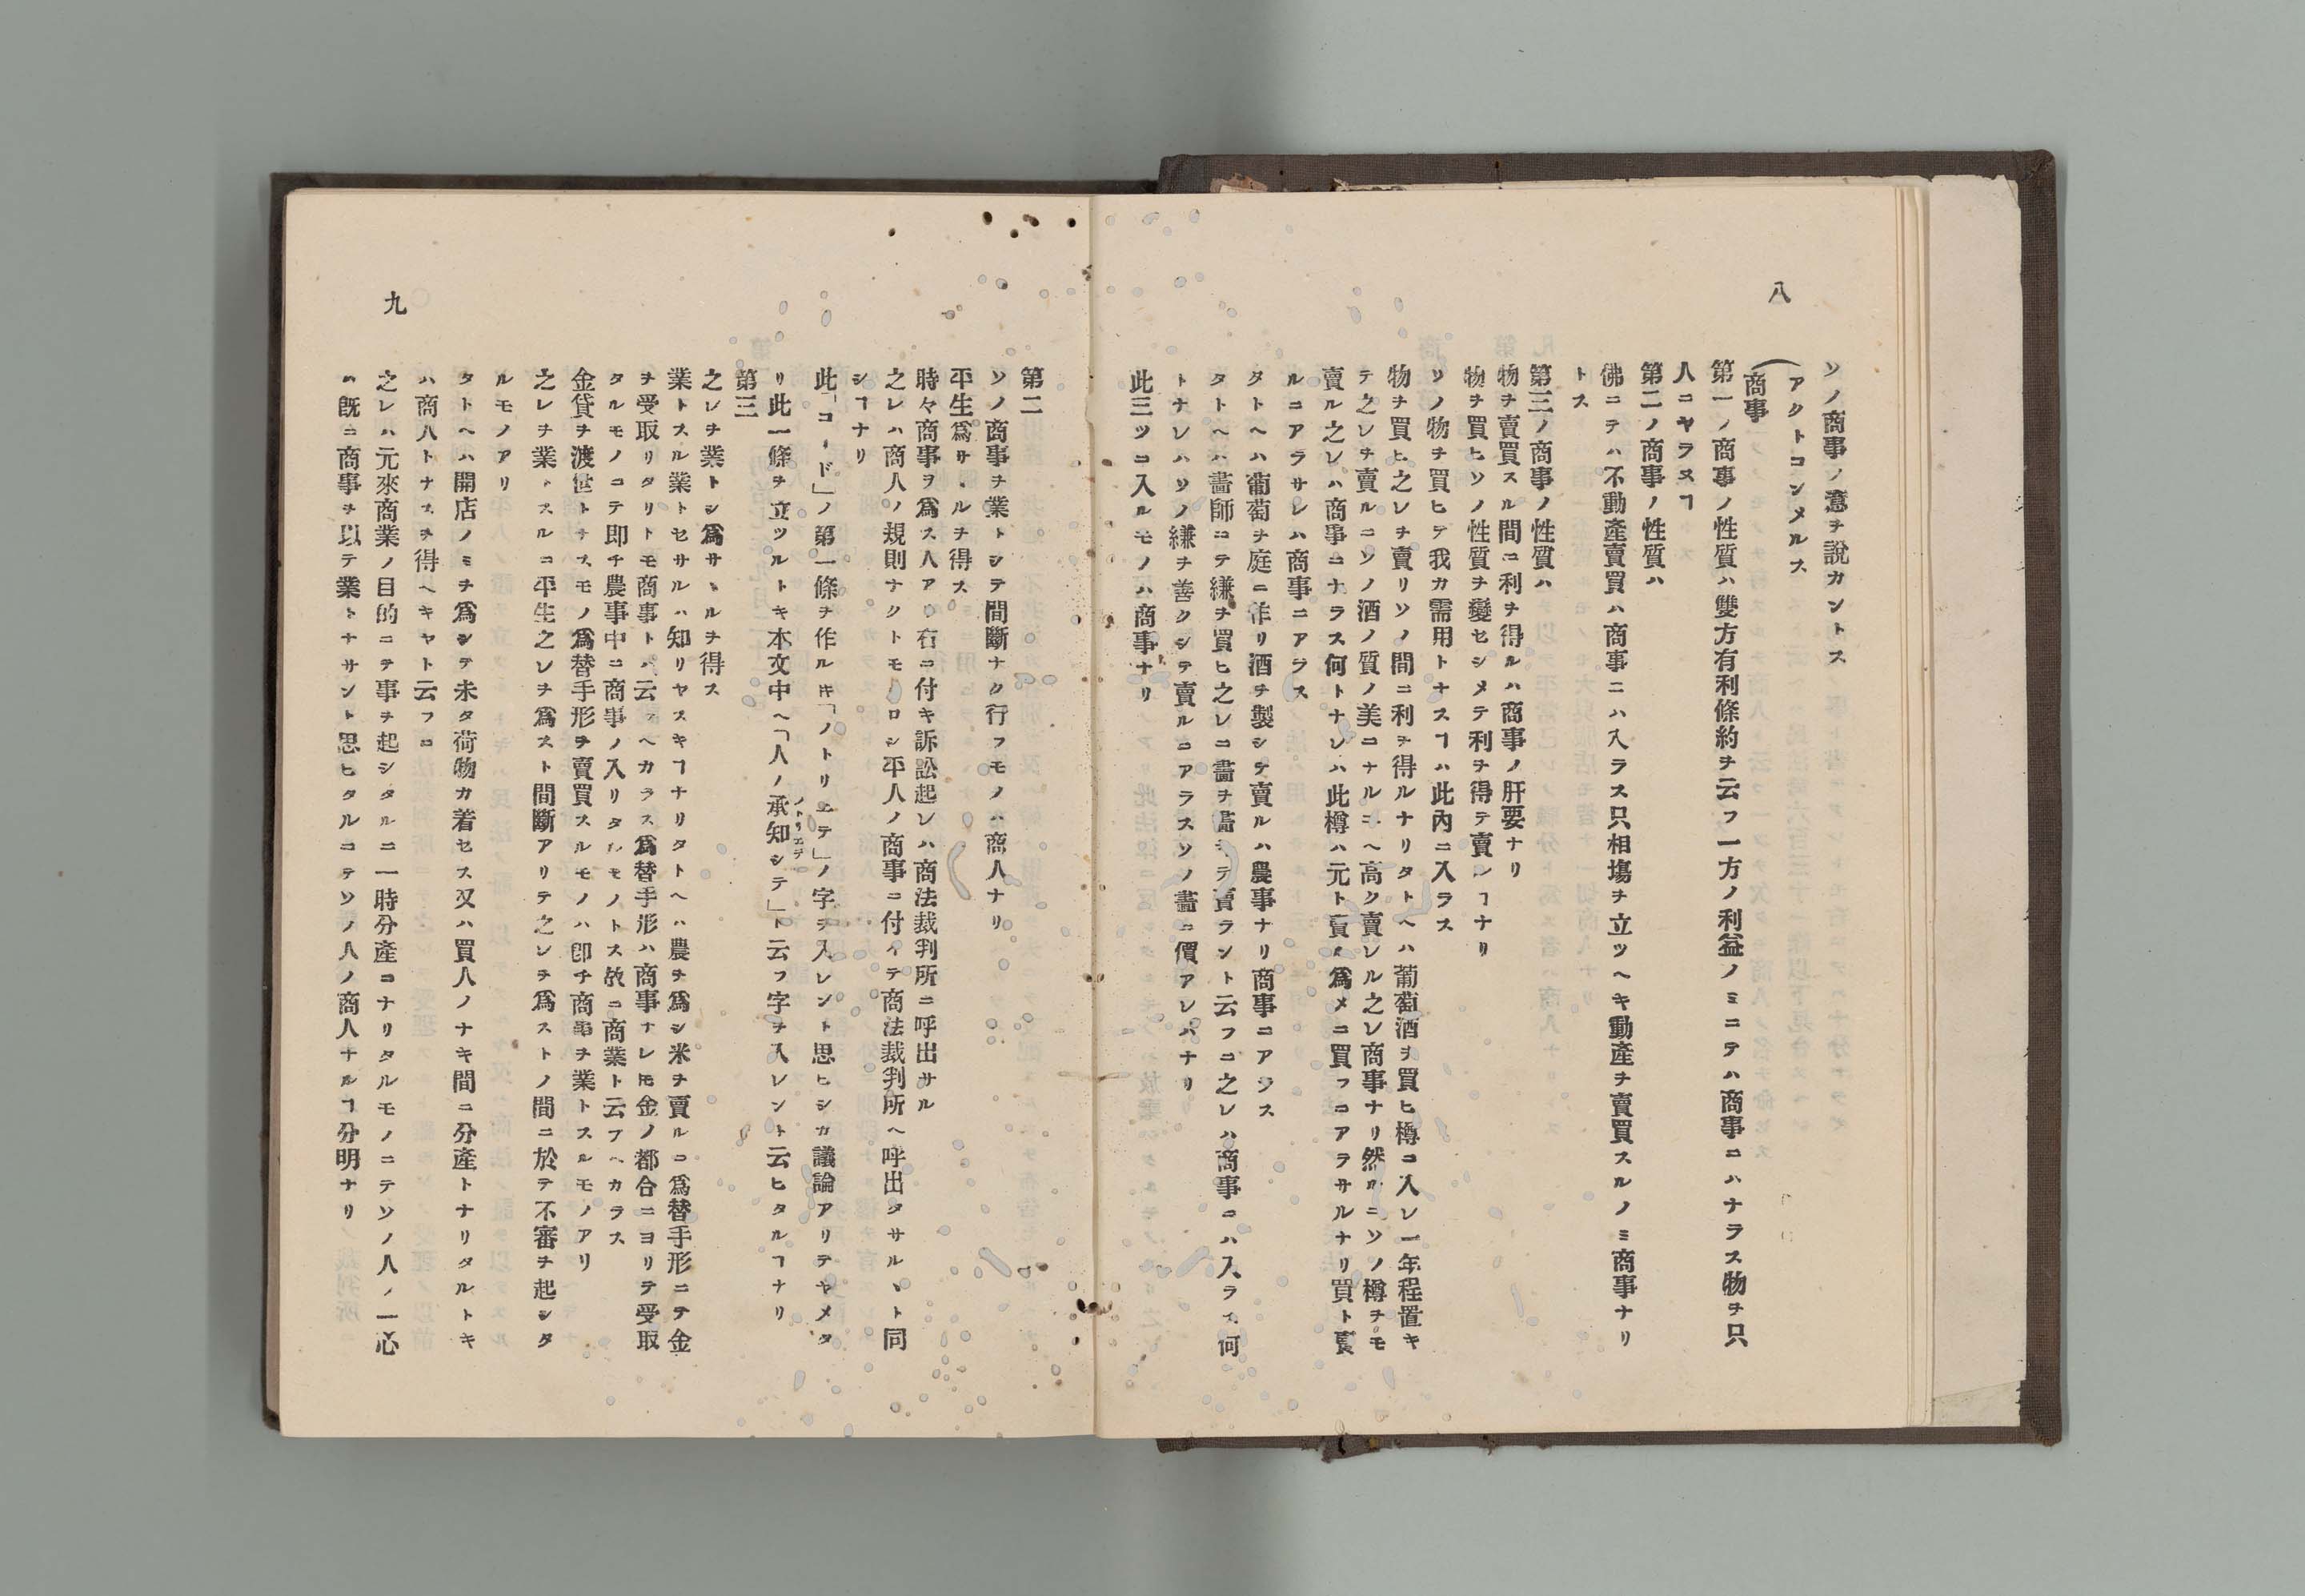 八
ソノ商事ノ意ヲ說カントス
アクトコンメルス
（商事
第一ノ商事ノ性質ハ雙方有利條約ヲ云フ一方ノ利益ノミニテハ商事ニハナラス物ヲ只
人ニヤラヌヿ
第二ノ商事ノ性質ハ
佛ニテハ不動產賣買ハ商事ニハ入ラス只相塲ヲ立ツヘキ動產ヲ賣買スルノミ商事ナリ
トス
第三ノ商事ノ性質ハ
物ヲ賣買スル間ニ利ヲ得ルハ商事ノ肝要ナリ
物ヲ買ヒソノ性質ヲ變セシメテ利ヲ得テ賣レヿナリ
ソノ物ヲ買ヒテ我カ需用トナスヿハ此內ニ入ラス
物ヲ買ヒ之レヲ賣リソノ間ニ利ヲ得ルナリタトヘハ葡萄酒ヲ買ヒ樽ニ入レ一年程置キ
テ之レヲ賣ルニソノ酒ノ質ノ美ニナルユヘ高ク賣レル之レ商事ナリ然ルニソノ樽ヲモ
賣ル之レハ商事ニナラス何トナレハ此樽ハ元ト賣ル爲メニ買フニアラサルナリ買ト賣
ルニアラサレハ商事ニアラス
タトヘハ葡萄ヲ庭ニ作リ酒ヲ製シテ賣ルハ農事ナリ商事ニアラス
タトヘハ畵師ニテ縑ヲ買ヒ之レニ畵ヲ畵キテ賣ラント云フニ之レハ商事ニハ入ラス何
トナレハソノ縑ヲ善クシテ賣ルニアラスソノ畵ニ價アレハナリ
此三ツニ入ルモノハ商事ナリ
第二
ソノ商事ヲ業トシテ間斷ナク行フモノハ商人ナリ
平生爲サヽルヲ得ス
時々商事ヲ爲ス人アリ右ニ付キ訴訟起レハ商法裁判所ニ呼出サル
之レハ商人ノ規則ナクトモ ロシ平人ノ商事ニ付イテ商法裁判所ヘ呼出タサルヽト同
シヿナリ
此「コード」ノ第一條ヲ作ルキ「ノトリエテ」ノ字ヲ入レント思ヒシカ議論アリテヤメタ
リ此一條ヲ立ツルトキ本文中ヘ「人ノ承知シテ」ト云フ字ヲ入レント云ヒタルヿナリ
ノトリエテ
第三
之レヲ業トシ爲サヽルヲ得ス
業トスル業トセサルハ知リヤスキヿナリタトヘハ農ヲ爲シ米ヲ賣ルニ爲替手形ニテ金
ヲ受取リタリトモ商事トハ云フヘカラス爲替手形ハ商事ナレモ金ノ都合ニヨリテ受取
タルモノニテ即チ農事中ニ商事ノ入リタルモノトス故ニ商業ト云フヘカラス
金貸ヲ渡世トナスモノ爲替手形ヲ賣買スルモノハ卽チ商事ヲ業トスルモノアリ
之レヲ業トスルニ平生之レヲ爲スト間斷アリテ之レヲ爲ストノ間ニ於テ不審ヲ起シタ
ルモノアリ
タトヘハ開店ノミヲ爲シテ未タ荷物カ着セス又ハ買人ノナキ間ニ分產トナリタルトキ
ハ商人トナスヲ得ヘキヤト云フニ
之レハ元來商業ノ目的ニテ事ヲ起シタルニ一時分產ニナリタルモノニテソノ人ノ一心
ハ既ニ商事ヲ以テ業トナサント思ヒタルニテソノ人ノ商人ナルヿ分明ナリ
九